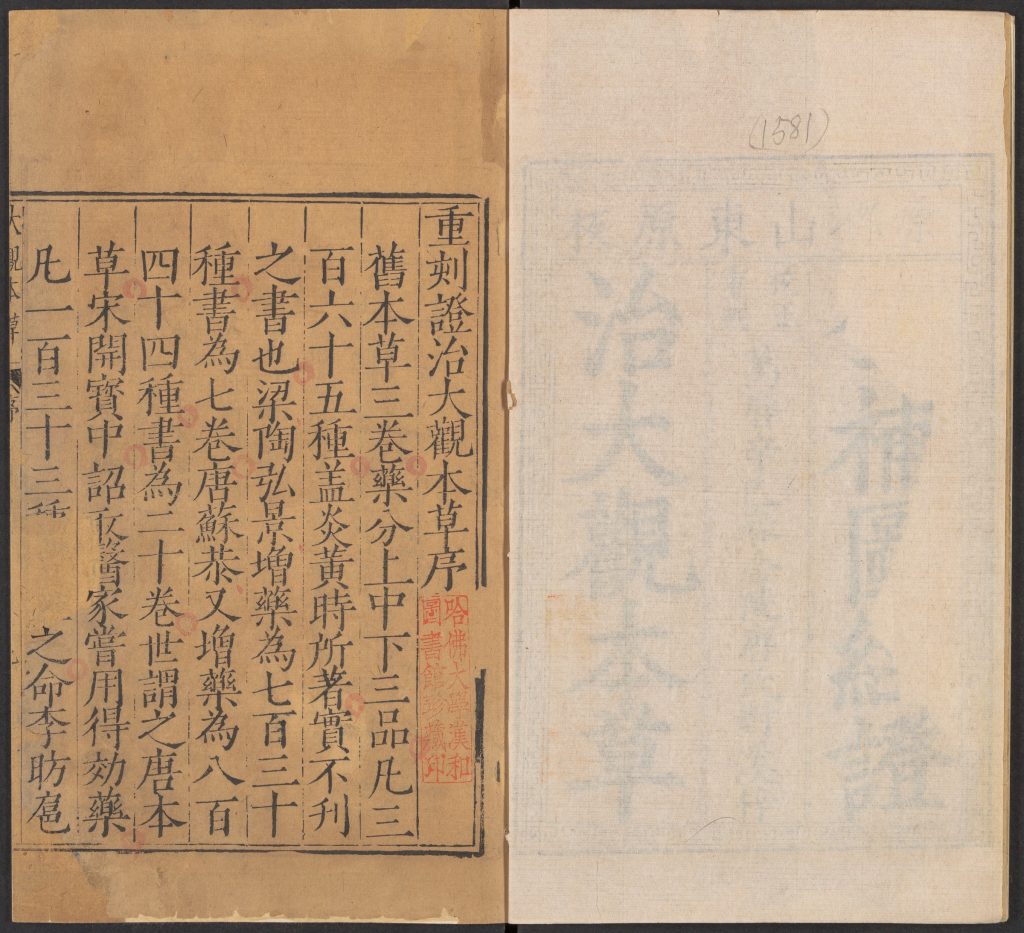 (1581)
山東原板
治大觀本草
重刻證治大觀本草序
哈佛大學漢和
圖書館珍藏印
舊本草三卷藥分上中下三品凡三
百六十五種盖炎黃時所著實不刊
之書也梁陶弘景增藥為七百三十
種書為七卷唐蘇恭又增藥為八百
四十四種書為二十卷世謂之唐本
草宋開寳中詔攷醫家嘗用得効藥
凡一百三十三種 之命李昉扈
大觀本草 序